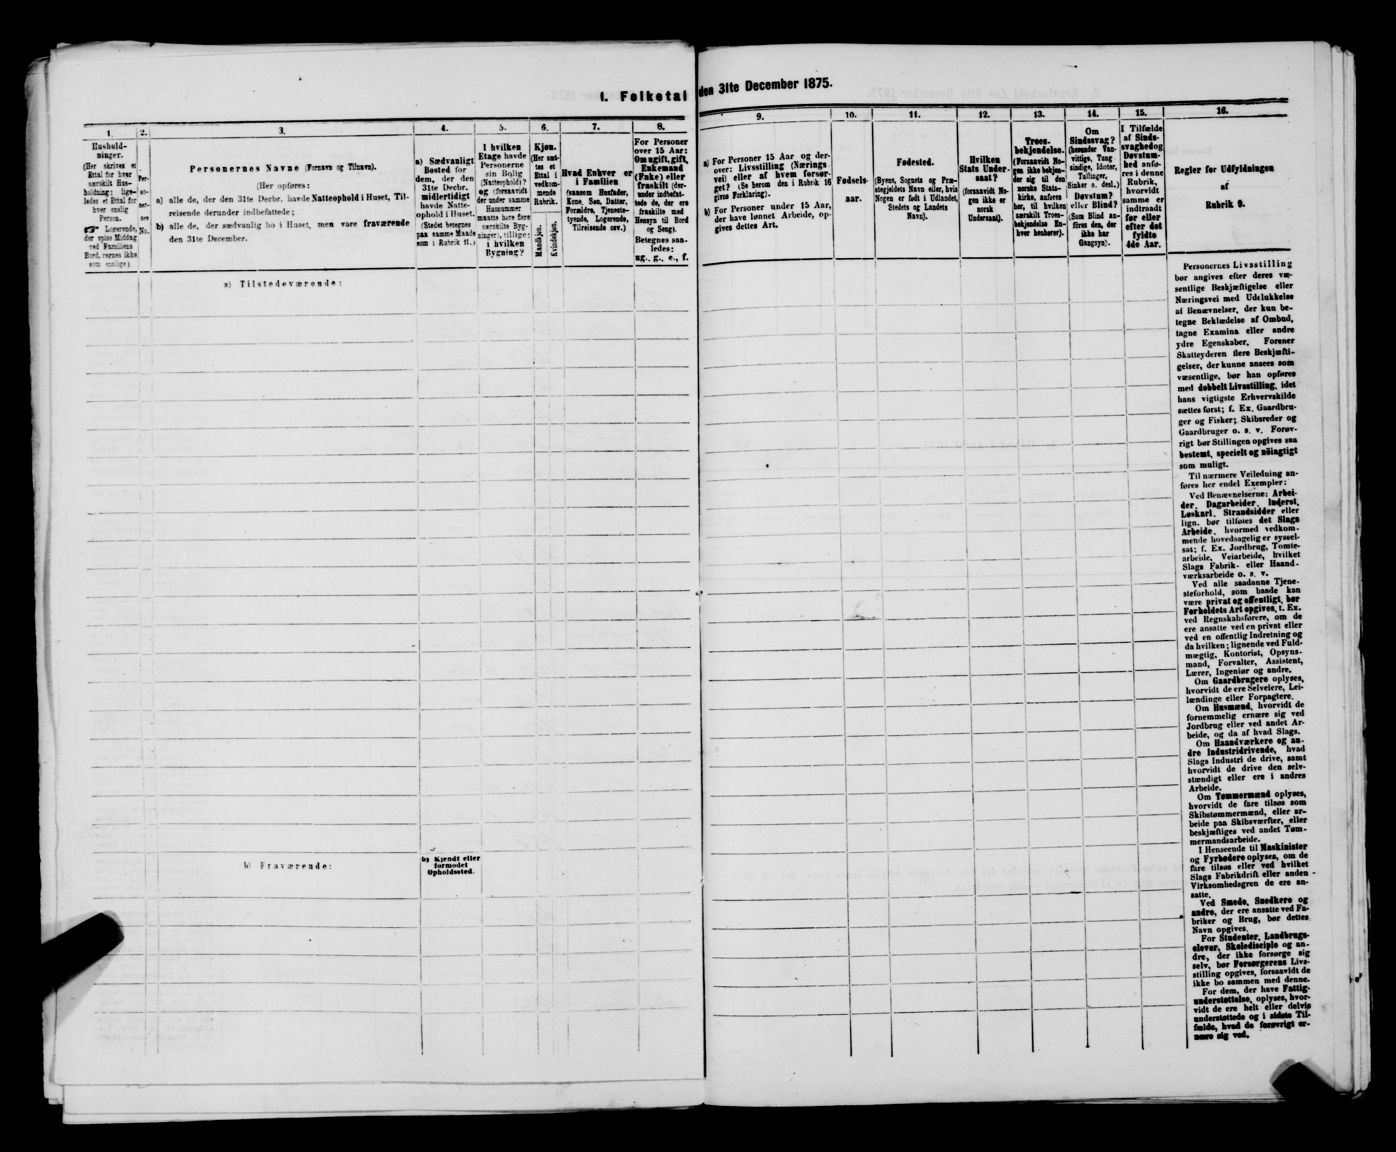 1. Folketal den 31te December 1875.
1.
Hushold-
ninger.
(Her skrives et
Ettal for hver
særskilt Hus-
holdning; lige-
ledes et Ettal for
hver enslig
Person.
☛ Logerende,
der spise Middag
ved Familiens
Bord, regnes ikke
som enslige)
2.
Per-
so-
ner-
nes
No.
3.
Personernes Navne (Fornavn og Tilnavn).
(Her opføres:
a) alle de, der den 31te Decbr. havde Natteophold i Huset, Til-
reisende derunder indbefattede;
b) alle de, der sædvanlig bo i Huset, men vare fraværende
den 31te December.
4.
a) Sædvanligt
Bosted for
dem, der den
31te Decbr.
midlertidigt
havde Natte-
ophold i Huset.
(Stedet betegnes
paa samme Maade
som i Rubrik 11.)
5.
I hvilken
Etage havde
Personerne
sin Bolig
(Natteophold)?
og (forsaavidt
der under samme
Husnummer
maatte høre flere
særskilte Byg-
ninger), tillige:
i hvilken
Bygning?
6.
Kjøn.
(Her sæt-
tes et
Ettal i
vedkom-
mende
Rubrik.
Mandkjøn.
Kvindekjøn.
7.
Hvad Enhver er
i Familien
(saasom Husfader,
Kone, Søn, Datter,
Forældre, Tjeneste-
tyende, Logerende,
Tilreisende osv.)
8.
For Personer
over 15 Aar:
Om ugift, gift,
Enkemand
(Enke) eller
fraskilt (der-
under indbefat-
tede de, der ere
fraskilte med
Hensyn til Bord
og Seng).
Betegnes saa-
ledes:
ug., g., e., f.
a) Tilstedeværende:
b) Fraværende:
b) Kjendt eller
formodet
Opholdssted.
9.
a) For Personer 15 Aar og der-
over: Livsstilling (Nærings
vei) eller af hvem forsør-
get? (Se herom den i Rubrik 16
givne Forklaring).
b) For Personer under 15 Aar,
der have lønnet Arbeide, op-
gives dettes Art.
10.
Fødsels-
aar.
11.
Fødested.
(Byens, Sognets og Præ-
stegjeldets Navn eller, hvis
Nogen er født i Udlandet,
Stedets og Landets
Navn).
12.
Hvilken
Stats Under-
saat?
(forsaavidt No-
gen ikke er
norsk
Undersaat).
13.
Troes-
bekjendelse.
(Forsaavidt No-
gen ikke bekjen-
der sig til den
norske Stats-
kirke, anføres
her, til hvilken
særskilt Troes-
bekjendelse En-
hver henhører).
14.
Om
Sindssvag?
(herunder Van-
vittige, Tung-
sindige, Idioter,
Tullinger,
Sinker o. desl.)
Døvstum?
eller Blind?
(Som Blind an-
føres den, der
ikke har
Gangsyn).
15.
I Tilfælde
af Sinds-
svaghed og
Døvstum-
hed anfø-
res i denne
Rubrik,
hvorvidt
samme er
indtraadt
før eller
efter det
fyldte
4de Aar.
16.
Regler for Udfyldningen
af
Rubrik 9.
Personernes Livsstilling
bør angives efter deres væ-
sentlige Beskjæftigelse eller
Næringsvei med Udelukkelse
af Benævnelser, der kun be-
tegne Beklædelse af Ombud,
tagne Examina eller andre
ydre Egenskaber. Forener
Skatteyderen flere Beskjæfti-
gelser, der kunne ansees som
væsentlige, bør han opføres
med dobbelt Livsstilling, idet
hans vigtigste Erhvervskilde
sættes først; f. Ex. Gaardbru-
ger og Fisker; Skibsreder og
Gaardbruger o. s. v. Forøv-
rigt bør Stillingen opgives saa
bestemt, specielt og nøiagtigt
som muligt.
Til nærmere Veiledning an-
føres her endel Exempler:
Ved Benævnelserne: Arbei-
der, Dagarbeider, Inderst,
Løskarl, Strandsidder eller
lign. bør tilføies det Slags
Arbeide, hvormed vedkom-
mende hovedsagelig er syssel-
sat; f. Ex. Jordbrug, Tomte-
arbeide, Veiarbeide, hvilket
Slags Fabrik- eller Haand-
værksarbeide o. s. v.
Ved alle saadanne Tjene-
steforhold, som baade kan
være privat og offentligt, bør
Forholdets Art opgives, t. Ex.
ved Regnskabsførere, om de
ere ansatte ved en privat eller
ved en offentlig Indretning og
da hvilken; lignende ved Fuld-
mægtig, Kontorist, Opsyns-
mand, Forvalter, Assistent,
Lærer, Ingeniør og andre.
Om Gaardbrugere oplyses,
hvorvidt de ere Selveiere, Lei-
lændinge eller Forpagtere.
Om Husmænd, hvorvidt de
fornemmelig ernære sig ved
Jordbrug eller ved andet Ar-
beide, og da af hvad Slags.
Om Haandværkere og an-
dre Industridrivende, hvad
Slags Industri de drive, samt
hvorvidt de drive den selv-
stændigt eller ere i andres
Arbeide.
Om Tømmermænd oplyses,
hvorvidt de fare tilsøs som
Skibstømmermænd, eller ar-
beide paa Skibsværfter, eller
beskjæftiges ved andet Tøm-
mermandsarbeide.
I Henseende til Maskinister
og Fyrbødere oplyses, om de
fare tilsøs eller ved hvilket
Slags Fabrikdrift eller anden
Virksomhedsgren de ere an-
satte.
Ved Smede, Snedkere og
andre, der ere ansatte ved Fa-
briker og Brug, bør dettes
Navn opgives.
For Studenter, Landbrugs-
elever, Skoledisciple og an-
dre, der ikke forsørge sig
selv, bør Forsørgerens Livs-
stilling opgives, forsaavidt de
ikke bo sammen med denne.
For dem, der have Fattig-
understøttelse, oplyses, hvor-
vidt de ere helt eller delvis
understøttede og i sidste Til-
fælde, hvad de forøvrigt er-
nære sig ved.